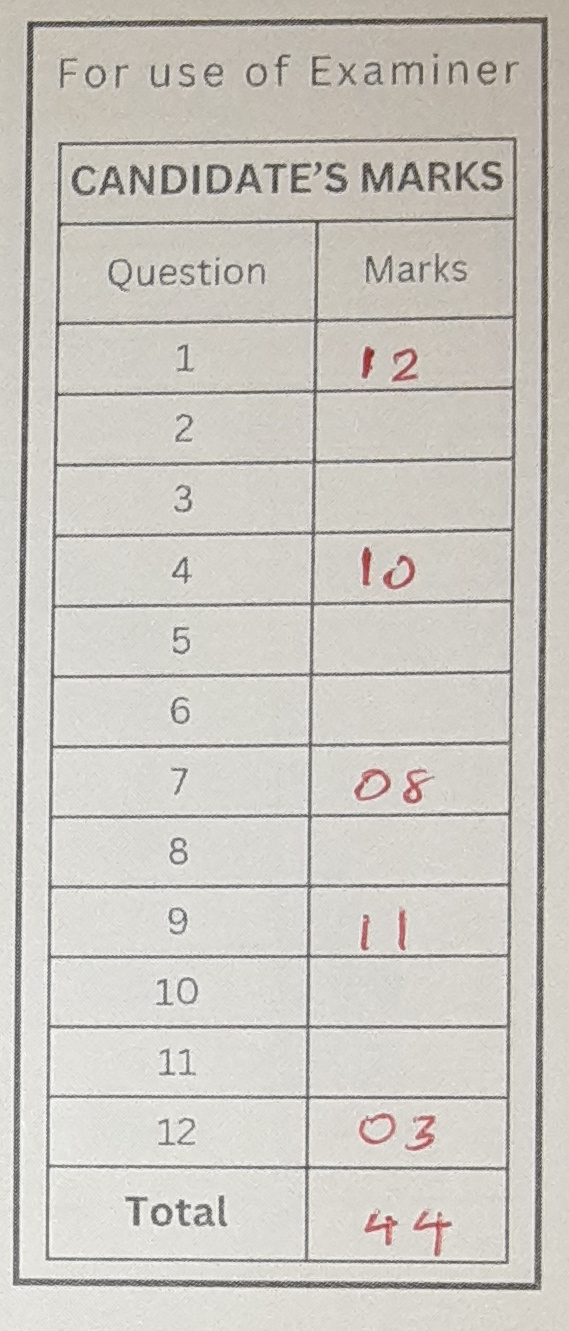 For use of Examiner
CANDIDATE'S MARKS
Question Marks
1 12
2
3
4 10
5
6
7 08
8
9 11
10
11
12 03
Total 44